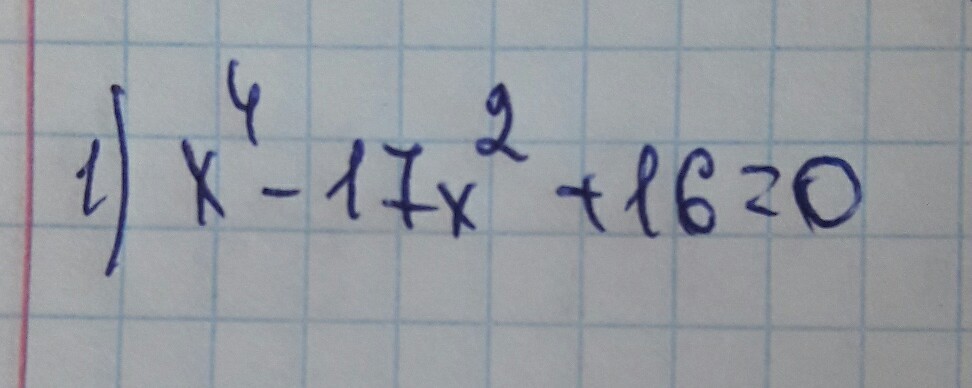 1) x⁴ - 17x² + 16 = 0